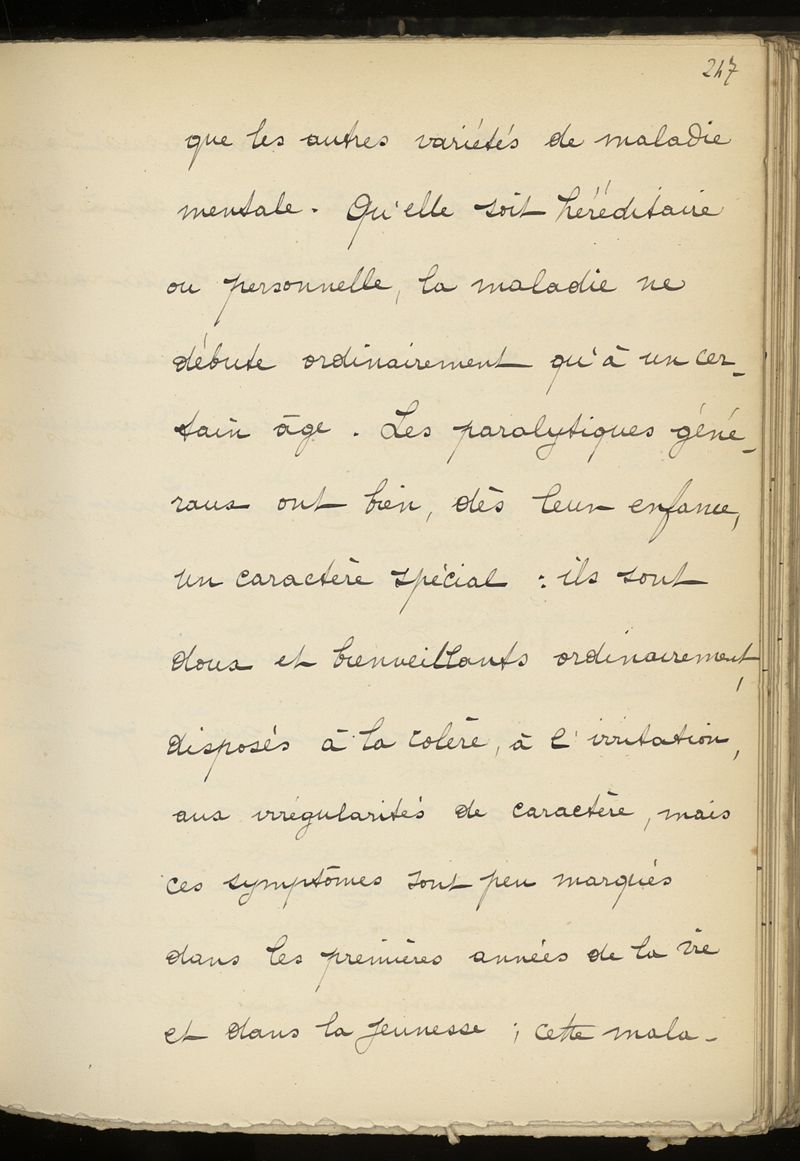 247
que les autres variétés de maladie
mentale. Qu'elle soit héréditaire
ou personnelle, la maladie ne
débute ordinairement qu'à un cer-
tain âge. Les paralytiques géné-
raux ont bien, dès leur enfance,
un caractère spécial : ils sont
doux et bienveillants ordinairement,
disposés à la colère, à l'irritation,
aux irrégularités de caractère, mais
ces symptômes sont peu marqués
dans les premières années de la vie
et dans la jeunesse ; cette mala-